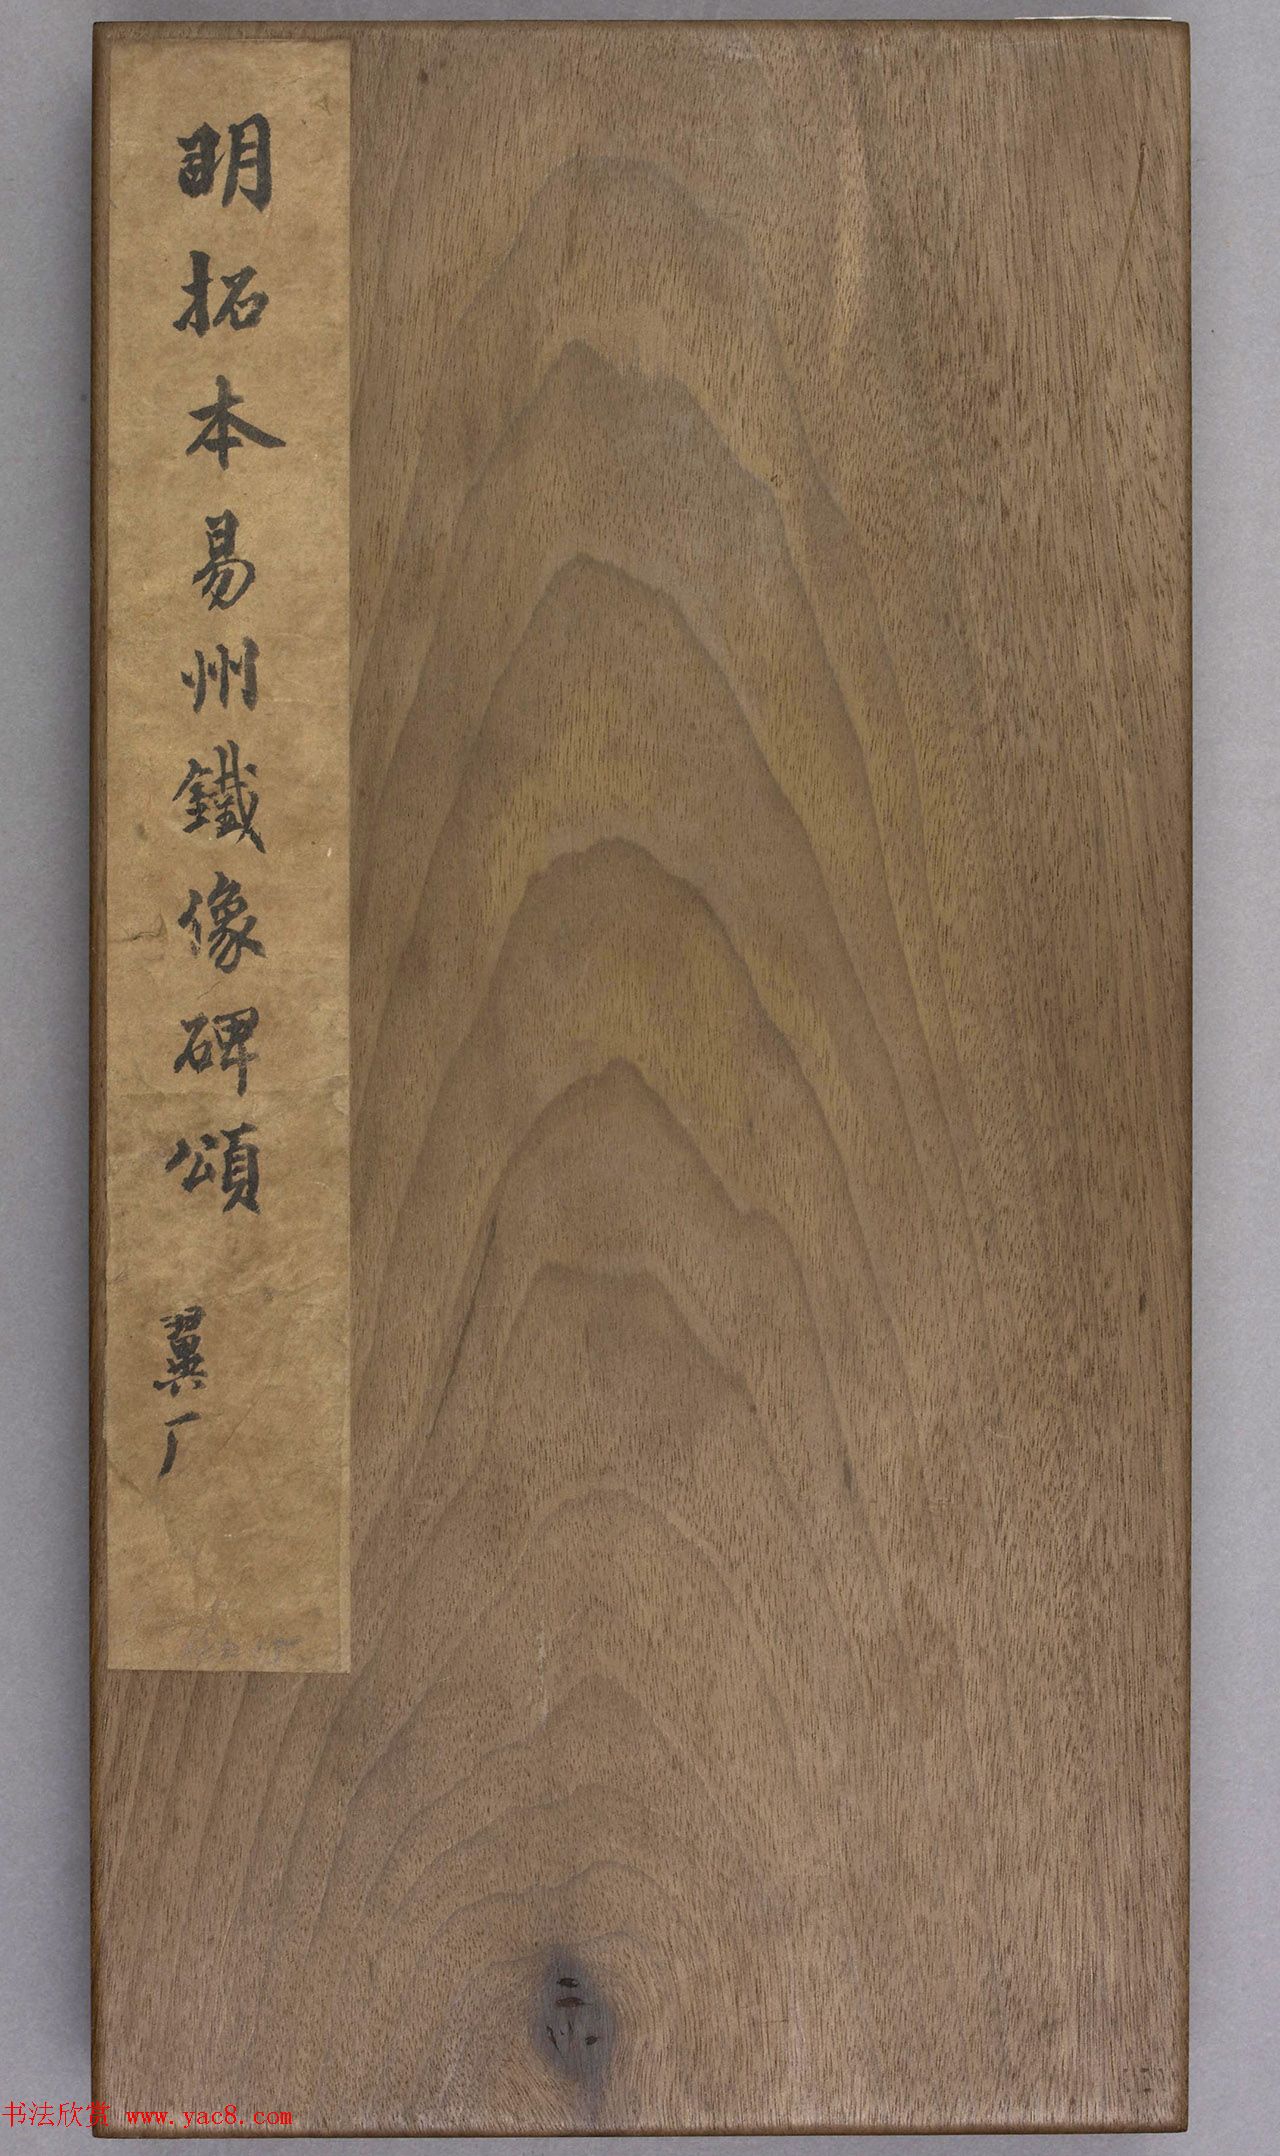 明拓本易州鐵像碑頌
翼厂
书法欣赏 www.yac8.com